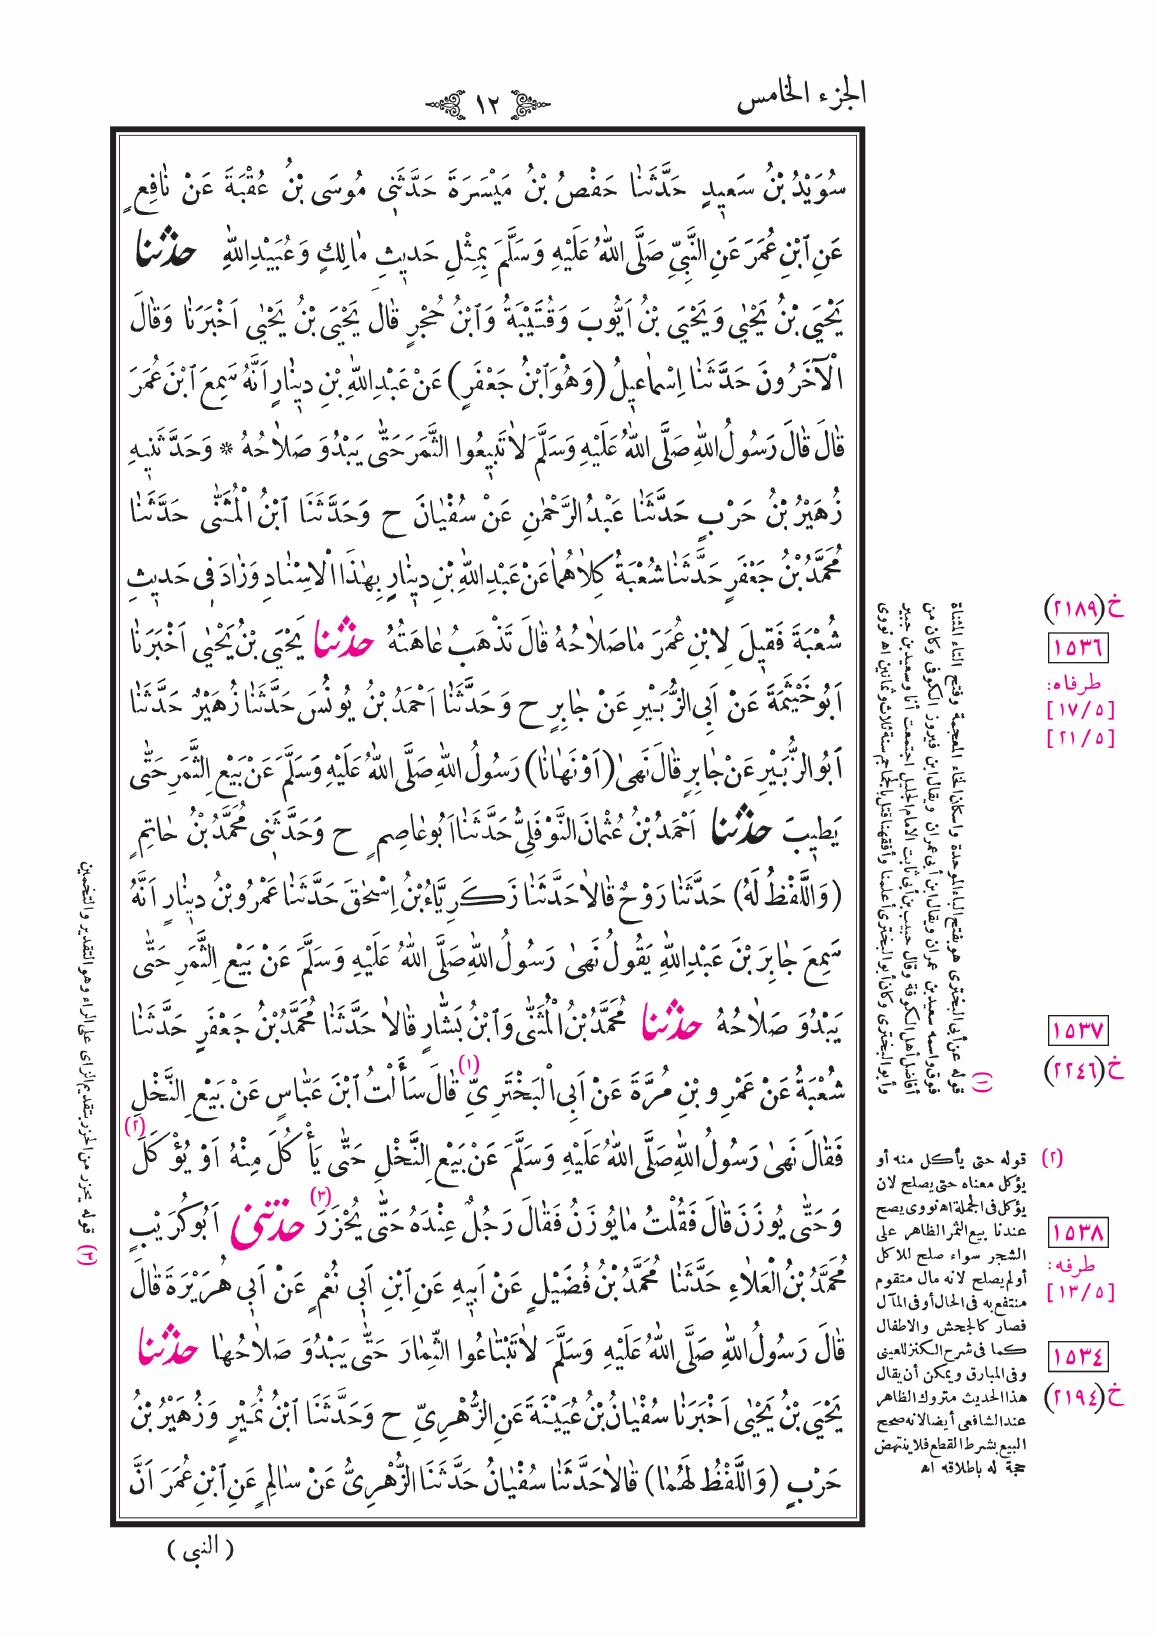 الجزء الخامس
١٢
سُوَيْدُ بْنُ سَعِيدٍ حَدَّثَنَا حَفْصُ بْنُ مَيْسَرَةَ حَدَّثَنِي مُوسَى بْنُ عُقْبَةَ عَنْ نَافِعٍ
عَنِ ابْنِ عُمَرَ عَنِ النَّبِيِّ صَلَّى اللهُ عَلَيْهِ وَسَلَّمَ بِمِثْلِ حَدِيثِ مَالِكٍ وَعُبَيْدِ اللهِ حدثنا
يَحْيَى بْنُ يَحْيٰى وَيَحْيَى بْنُ اَيُّوبَ وَقُتَيْبَةُ وَابْنُ حُجْرٍ قَالَ يَحْيَى بْنُ يَحْيٰى اَخْبَرَنَا وَقَالَ
الْآخَرُونَ حَدَّثَنَا اِسْمَاعِيلُ (وَهُوَ ابْنُ جَعْفَرٍ) عَنْ عَبْدِ اللهِ بْنِ دِينَارٍ اَنَّهُ سَمِعَ ابْنَ عُمَرَ
قَالَ قَالَ رَسُولُ اللهِ صَلَّى اللهُ عَلَيْهِ وَسَلَّمَ لَا تَبِيعُوا الثَّمَرَ حَتّٰى يَبْدُوَ صَلَاحُهُ * وَحَدَّثَنِيهِ
زُهَيْرُ بْنُ حَرْبٍ حَدَّثَنَا عَبْدُ الرَّحْمٰنِ عَنْ سُفْيَانَ ح وَحَدَّثَنَا ابْنُ الْمُثَنّٰى حَدَّثَنَا
مُحَمَّدُ بْنُ جَعْفَرٍ حَدَّثَنَا شُعْبَةُ كِلَاهُمَا عَنْ عَبْدِ اللهِ بْنِ دِينَارٍ بِهٰذَا الْاِسْنَادِ وَزَادَ فِي حَدِيثِ
شُعْبَةَ فَقِيلَ لِابْنِ عُمَرَ مَا صَلَاحُهُ قَالَ تَذْهَبُ عَاهَتُهُ حدثنا يَحْيَى بْنُ يَحْيٰى اَخْبَرَنَا
اَبُو خَيْثَمَةَ عَنْ اَبِي الزُّبَيْرِ عَنْ جَابِرٍ ح وَحَدَّثَنَا اَحْمَدُ بْنُ يُونُسَ حَدَّثَنَا زُهَيْرٌ حَدَّثَنَا
اَبُو الزُّبَيْرِ عَنْ جَابِرٍ قَالَ نَهٰى (اَوْ نَهَانَا) رَسُولُ اللهِ صَلَّى اللهُ عَلَيْهِ وَسَلَّمَ عَنْ بَيْعِ الثَّمَرِ حَتّٰى
يَطِيبَ حدثنا اَحْمَدُ بْنُ عُثْمَانَ النَّوْفَلِيُّ حَدَّثَنَا اَبُو عَاصِمٍ ح وَحَدَّثَنِي مُحَمَّدُ بْنُ حَاتِمٍ
(وَاللَّفْظُ لَهُ) حَدَّثَنَا رَوْحٌ قَالَا حَدَّثَنَا زَكَرِيَّاءُ بْنُ اِسْحٰقَ حَدَّثَنَا عَمْرُو بْنُ دِينَارٍ اَنَّهُ
سَمِعَ جَابِرَ بْنَ عَبْدِ اللهِ يَقُولُ نَهٰى رَسُولُ اللهِ صَلَّى اللهُ عَلَيْهِ وَسَلَّمَ عَنْ بَيْعِ الثَّمَرِ حَتّٰى
يَبْدُوَ صَلَاحُهُ حدثنا مُحَمَّدُ بْنُ الْمُثَنّٰى وَابْنُ بَشَّارٍ قَالَا حَدَّثَنَا مُحَمَّدُ بْنُ جَعْفَرٍ حَدَّثَنَا
شُعْبَةُ عَنْ عَمْرِو بْنِ مُرَّةَ عَنْ اَبِي الْبَخْتَرِيِّ (١) قَالَ سَأَلْتُ ابْنَ عَبَّاسٍ عَنْ بَيْعِ النَّخْلِ
فَقَالَ نَهٰى رَسُولُ اللهِ صَلَّى اللهُ عَلَيْهِ وَسَلَّمَ عَنْ بَيْعِ النَّخْلِ حَتّٰى يَأْكُلَ مِنْهُ اَوْ يُؤْكَلَ (٢)
وَحَتّٰى يُوزَنَ قَالَ فَقُلْتُ مَا يُوزَنُ فَقَالَ رَجُلٌ عِنْدَهُ حَتّٰى يُحْزَرَ (٣) حدثني اَبُو كُرَيْبٍ
مُحَمَّدُ بْنُ الْعَلَاءِ حَدَّثَنَا مُحَمَّدُ بْنُ فُضَيْلٍ عَنْ اَبِيهِ عَنِ ابْنِ اَبِي نُعْمٍ عَنْ اَبِي هُرَيْرَةَ قَالَ
قَالَ رَسُولُ اللهِ صَلَّى اللهُ عَلَيْهِ وَسَلَّمَ لَا تَبْتَاعُوا الثِّمَارَ حَتّٰى يَبْدُوَ صَلَاحُهَا حدثنا
يَحْيَى بْنُ يَحْيٰى اَخْبَرَنَا سُفْيَانُ بْنُ عُيَيْنَةَ عَنِ الزُّهْرِيِّ ح وَحَدَّثَنَا ابْنُ نُمَيْرٍ وَزُهَيْرُ بْنُ
حَرْبٍ (وَاللَّفْظُ لَهُمَا) قَالَا حَدَّثَنَا سُفْيَانُ حَدَّثَنَا الزُّهْرِيُّ عَنْ سَالِمٍ عَنِ ابْنِ عُمَرَ اَنَّ
(النبى)
خ (٢١٨٩)
١٥٣٦
طرفاه:
[١٧/٥]
[٢١/٥]
١٥٣٧
خ (٢٢٤٦)
١٥٣٨
طرفه:
[١٣/٥]
١٥٣٤
خ (٢١٩٤)
(١) قوله عن أبى البخترى هو بفتح الباء الموحدة واسكان الخاء المعجمة وفتح التاء المثناة
فوق واسمه سعيد بن عمران ويقال ابن أبى عمران ويقال ابن فيروز الكوفى وكان من
أفاضل أهل الكوفة وقال حبيب بن أبى ثابت الامام الجليل اجتمعت أنا وسعيد بن جبير
وأبو البخترى وكان أبو البخترى أعلمنا وأفقهنا قتل بالجماجم سنة ثلاث وثمانين اه نووى
(٢) قوله حتى يأكل منه أو
يؤكل معناه حتى يصلح لان
يؤكل فى الجملة اه نووى يصح
عندنا بيع الثمر الظاهر على
الشجر سواء صلح للاكل
أو لم يصلح لانه مال متقوم
منتفع به فى الحال أو فى المآل
فصار كالجحش والاطفال
كما فى شرح الكنز للعينى
وفى المبارق ويمكن أن يقال
هذا الحديث متروك الظاهر
عند الشافعى أيضا لانه صحح
البيع بشرط القطع فلا ينتهض
حجة له باطلاقه اه
(٣) قوله يحزر من الحزر بتقديم الزاى على الراء وهو التقدير والتخمين